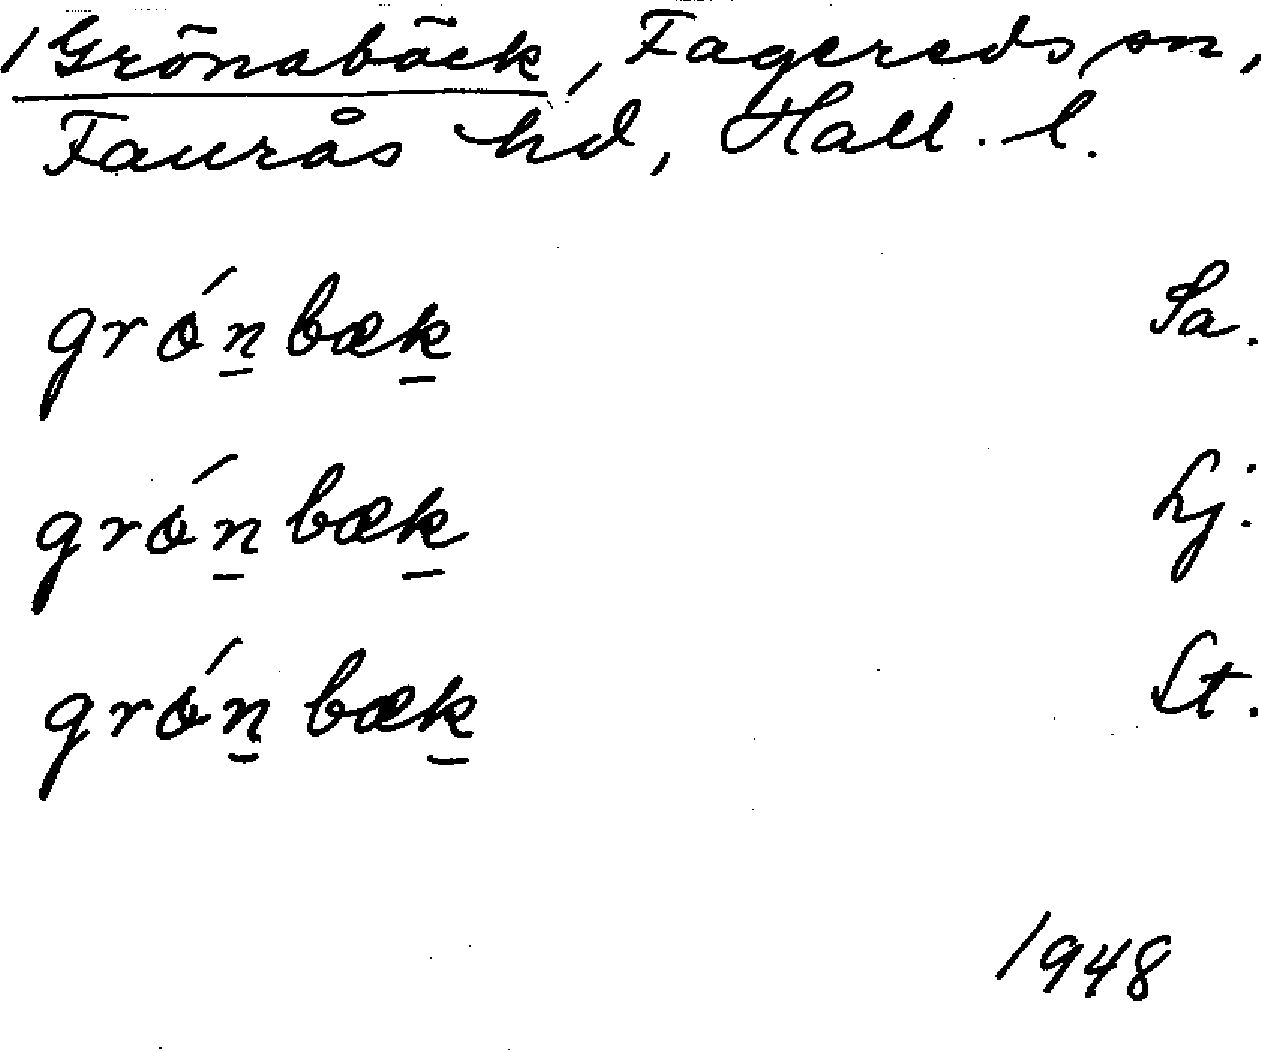 /Grönabäck, Fagereds sn,
Faurås hd, Hall. l.
grǿn̲bæk̲ Sa.
grǿn̲bæk̲ Lj.
grǿn̲bæk̲ St.
1948